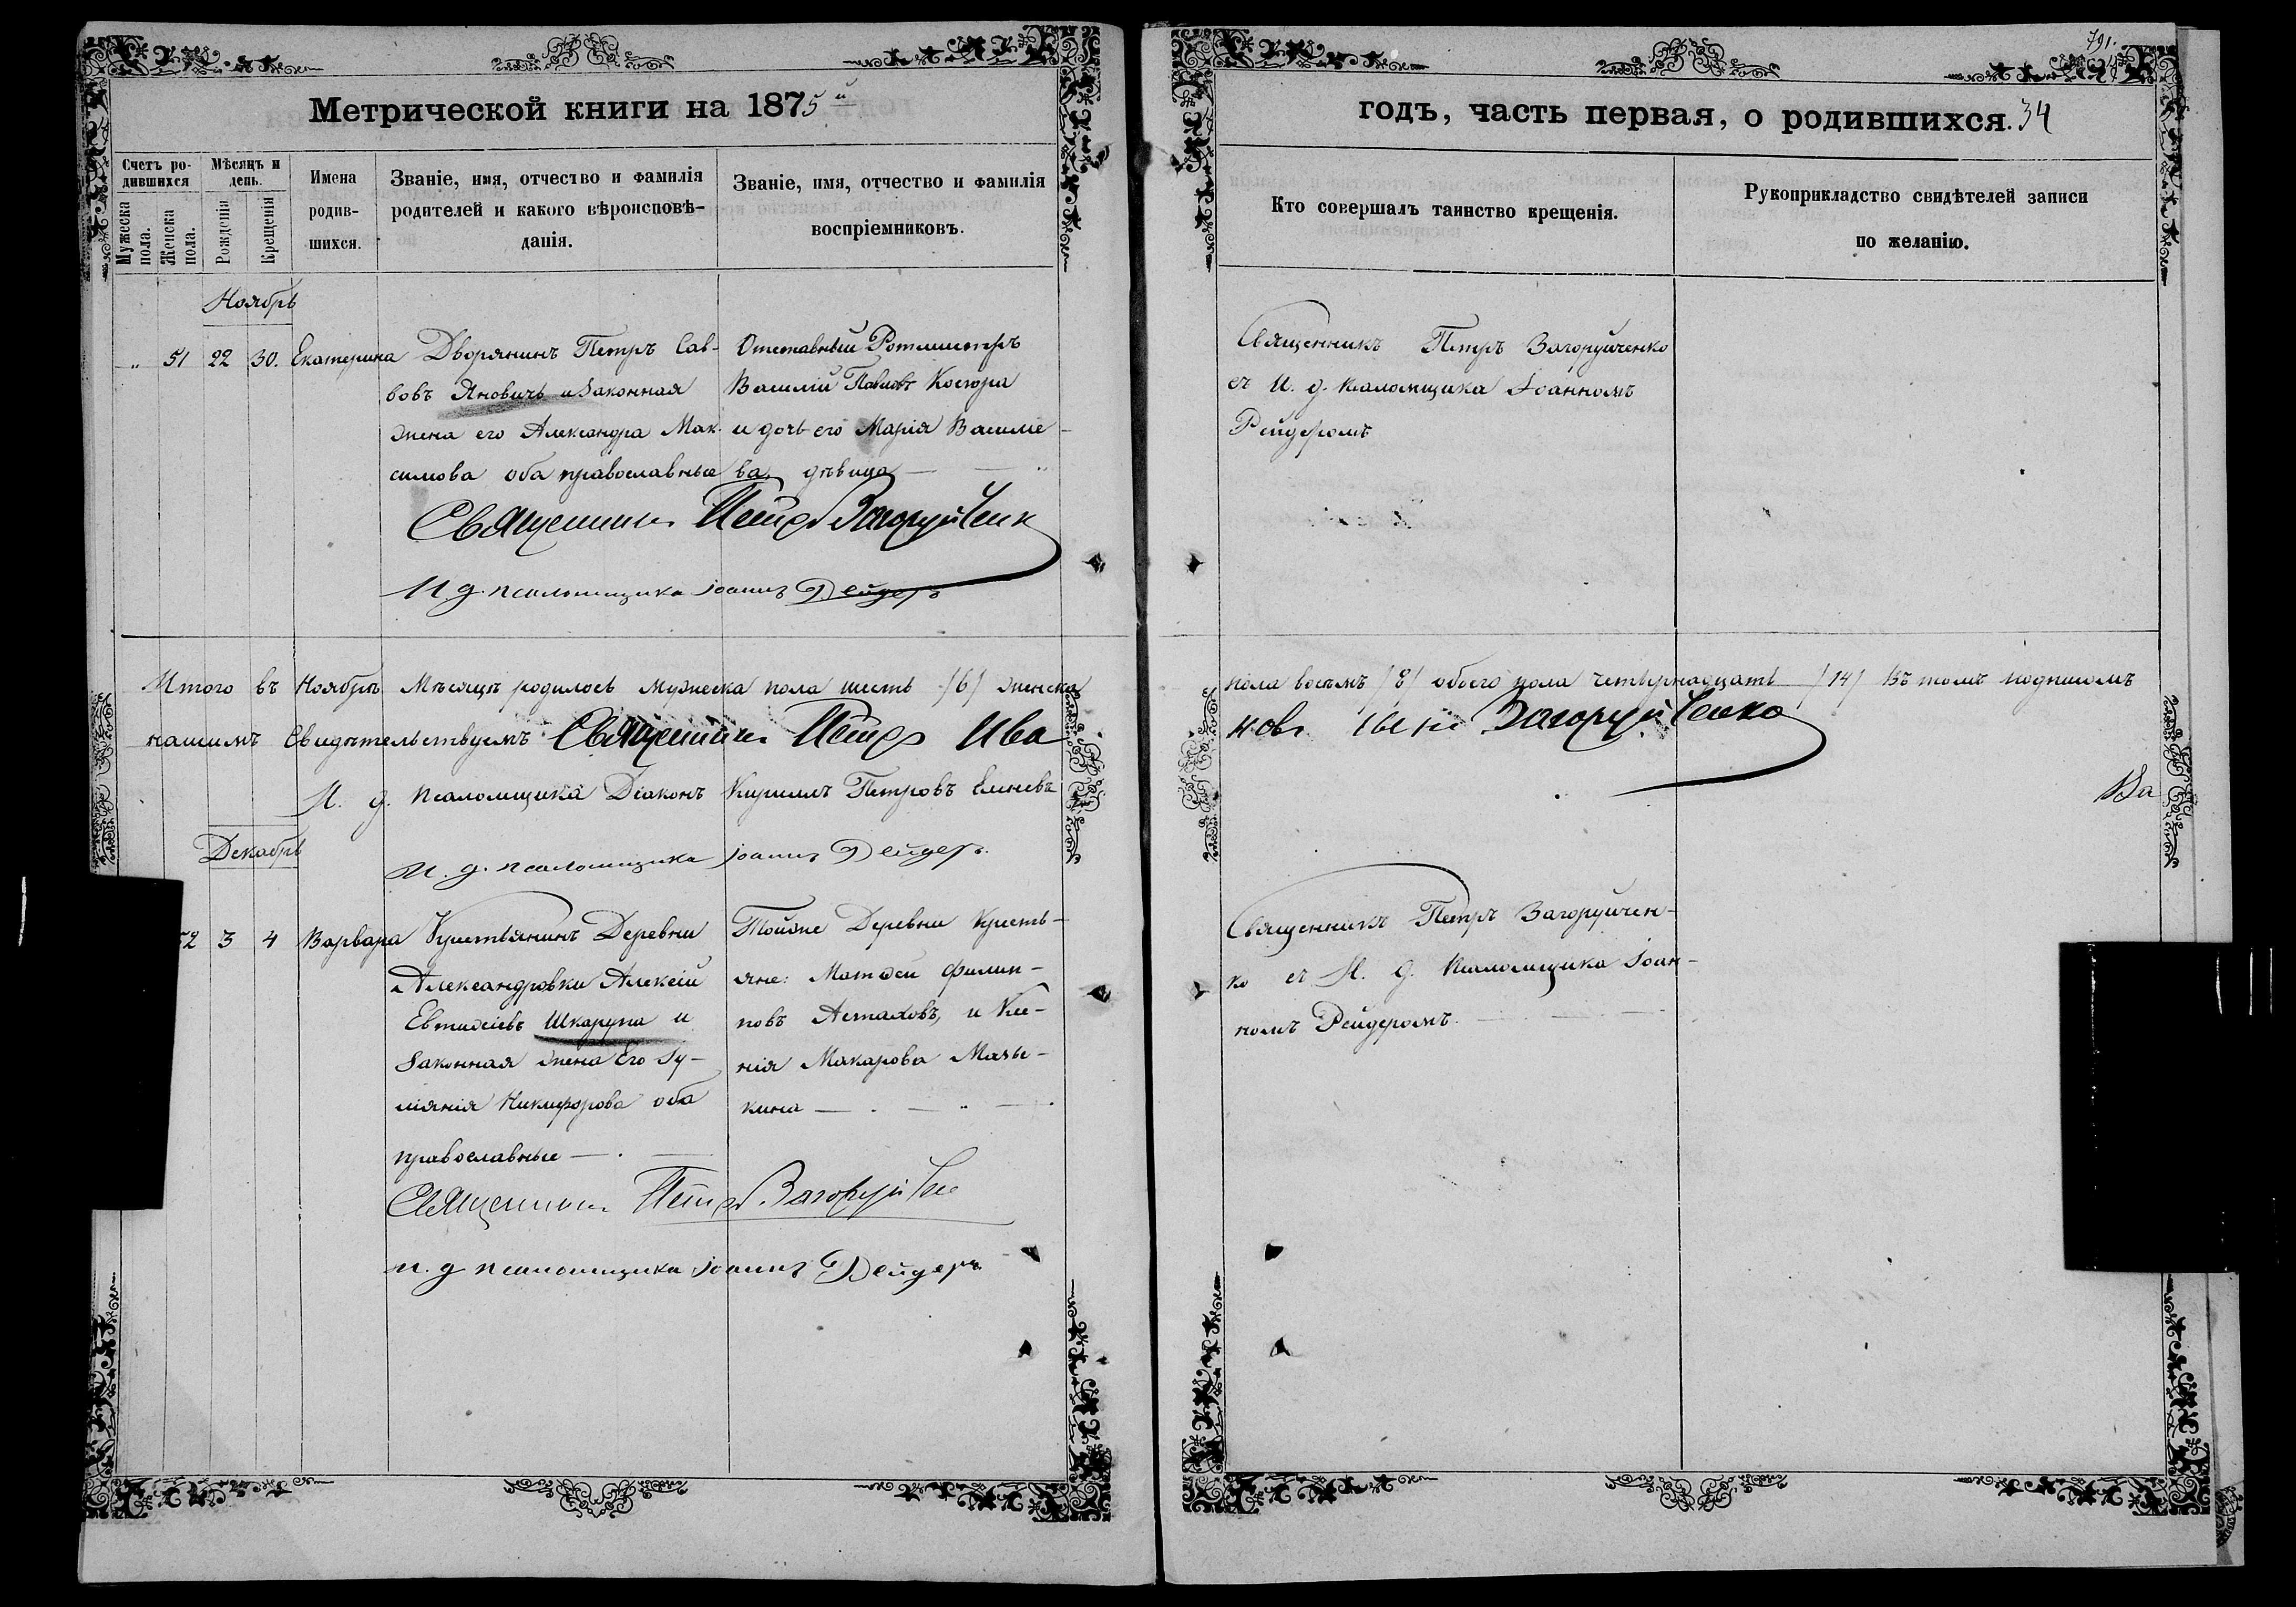 791.
Метрической книги на 1875й
годъ, часть первая, о родившихся. 34
Счетъ ро-
дившихся
Мѣсяцъ и
день.
Мужеска
пола.
Женска
пола.
Рожденія
Крещенія
Имена
родив-
шихся.
Званіе, имя, отчество и фамилія
родителей и какого вѣроисповѣ-
данія.
Званіе, имя, отчество и фамилія
воспріемниковъ.
Кто совершалъ таинство крещенія.
Рукоприкладство свидѣтелей записи
по желанію.
Ноябрь
" 51 22 30. Екатерина
Дворянинъ Петръ Сав-
вовъ Яновичь и законная
жена его Александра Мак-
симова оба православные
Отставный Ротмистръ
Василій Павловъ Костра
и дочь его Марія Василье-
ва, дѣвица
Священникъ Петръ Загоруйченко
съ И. д. псаломщика Іоанномъ
Рейдеромъ
Священникъ Петръ Загоруйченк
И. д. псаломщика Іоаннъ Рейдеръ
Итого въ Ноябрѣ Мѣсяцѣ родилось мужеска пола шесть /6/ женска
пола восемь /8/ обоего пола четырнадцать /14/ Въ томъ подписомъ
нашимъ Свидѣтельствуемъ Священникъ Петръ Ива
новъ сынъ Загоруйченко
И. д. псаломщика Діаконъ Кириллъ Петровъ
Ва
И. д. псаломщика Іоаннъ Рейдеръ.
Декабрь
52 3 4 Варвара
Крестьянинъ Деревни
Александровки Алексій
Евтихіевъ Шкарупа и
законная жена Его Іу-
ліянія Никифорова оба
православные
Тойже Деревни кресть-
яне: Матѳей Филип-
повъ Астаховъ, и Ксе-
нія Макарова Мазы-
кина
Священникъ Петръ Загоруйчен-
ко съ И. д. Псаломщика Іоан-
номъ Рейдеромъ.
Священникъ Петръ Загоруйченко
И. д. псаломщика Іоаннъ Рейдеръ